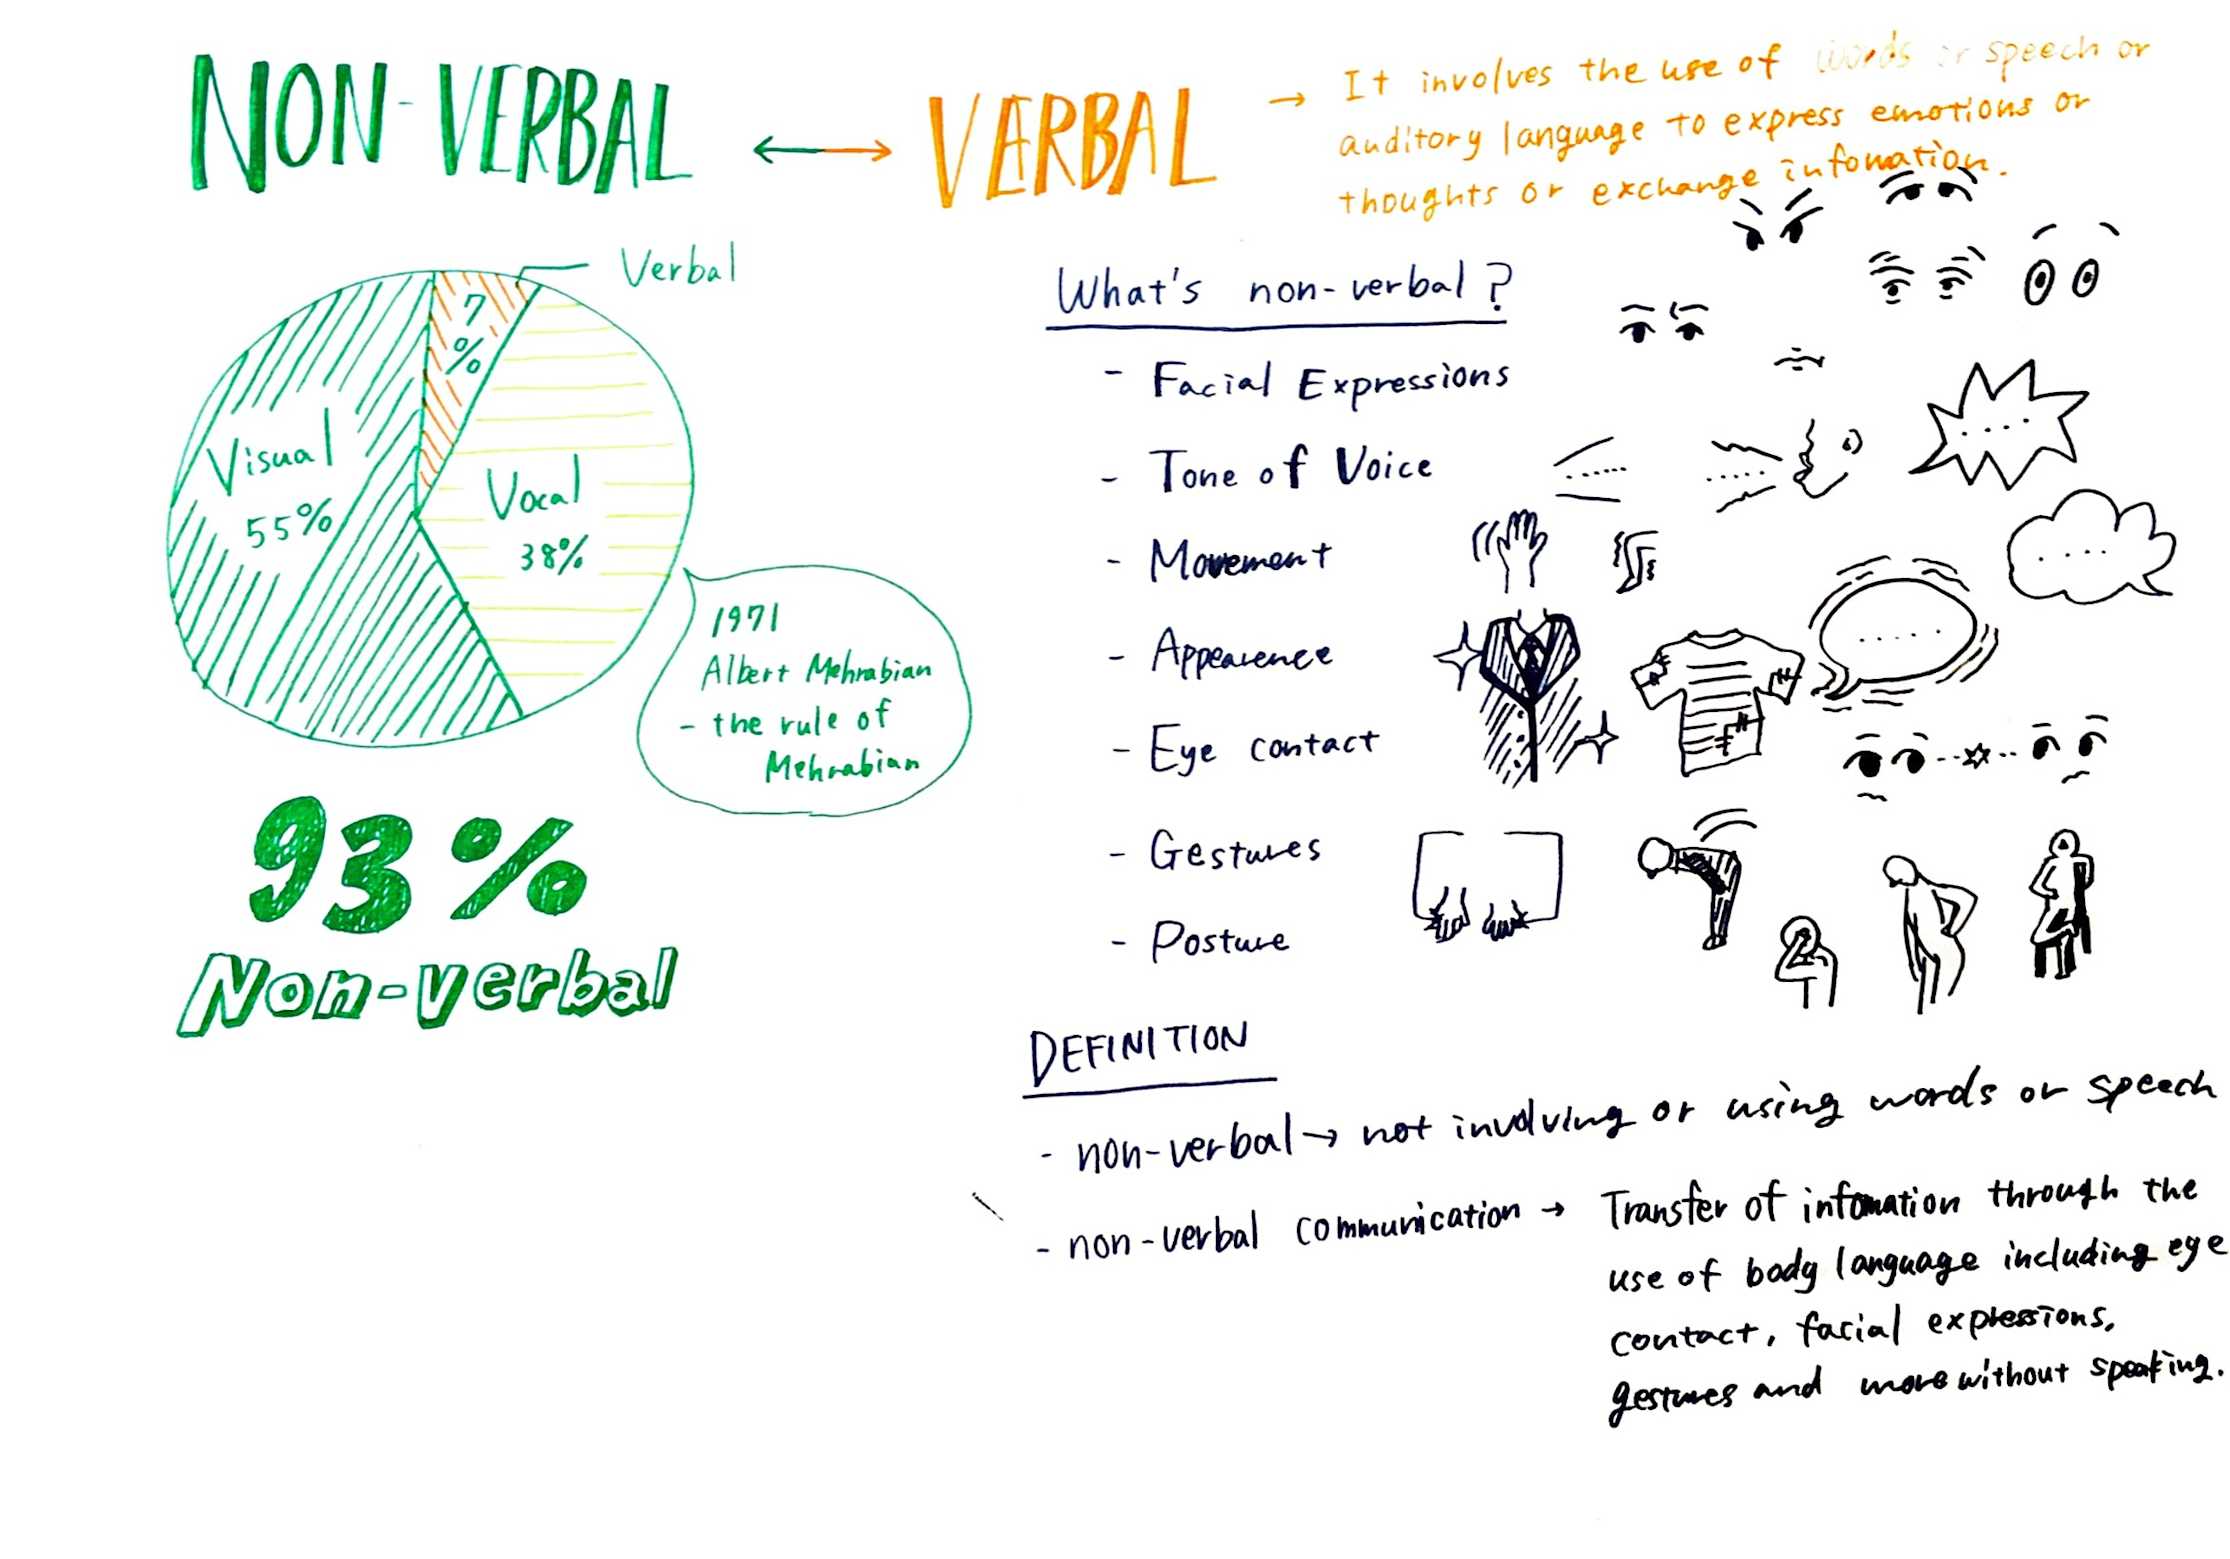 NON-VERBAL ←→ VERBAL
→ It involves the use of words or speech or
auditory language to express emotions or
thoughts or exchange infomation.
Verbal
7
%
Visual
55%
Vocal
38%
1971
Albert Mehrabian
- the rule of
Mehrabian
93%
Non-verbal
What's non-verbal?
- Facial Expressions
- Tone of Voice
- Movement
- Appearence
- Eye contact
- Gestures
- Posture
DEFINITION
- non-verbal → not involving or using words or speech
- non-verbal communication → Transfer of infomation through the
use of body language including eye
contact, facial expressions,
gestures and more without speaking.